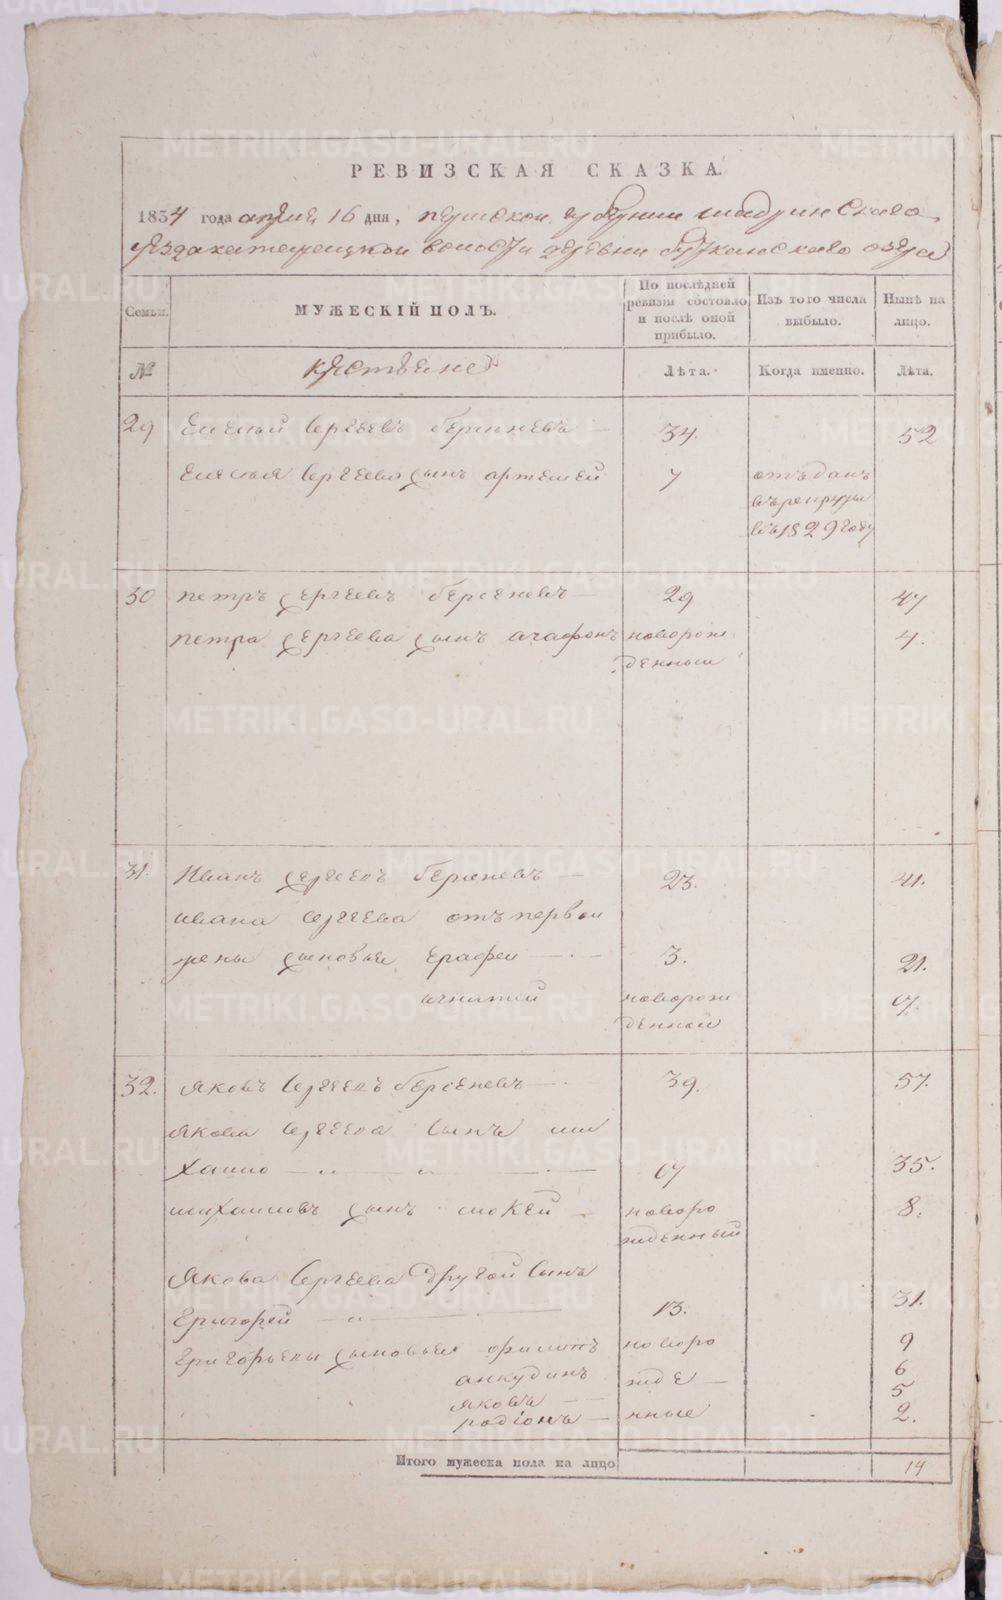 РЕВИЗСКАЯ СКАЗКА.
1834 года апреля 16 дня, пермской губернии шадринскаго
уезда катерецкой волости деревни озера
Семьи.
МУЖЕСКІЙ ПОЛЪ.
По послѣдней ревизіи состояло и послѣ оной прибыло.
Изъ того числа выбыло.
Нынѣ на лицо.
№
крестьяне
Лѣта.
Когда именно.
Лѣта.
29 Сергеевъ берсеневъ 34. 52
Сергеева сынъ артемей 7 отъданъ
въ рекруты
въ 1829 году
30 петръ сергеевъ берсеневъ 29 47
петра сергеева сынъ агафонъ новорож 4.
денный
31. Иванъ сергеевъ берсеневъ 23. 41.
ивана сергеева отъ первой
жены сыновья ерафей 3. 21.
игнатей новорож 17.
денной
32. яковъ Сергеевъ берсеневъ 39. 57.
якова сергеева сынъ ми
хайло 17 35.
михайловъ сынъ мокей новоро 8.
жденный
Якова Сергеева другой сынъ
Григорей 13. 31.
Григорьевы сыновья филипъ новоро 9
анкудинъ жде 6
яковъ 5
родіонъ нные 2.
Итого мужеска пола на лицо 14
METRIKI.GASO-URAL.RU